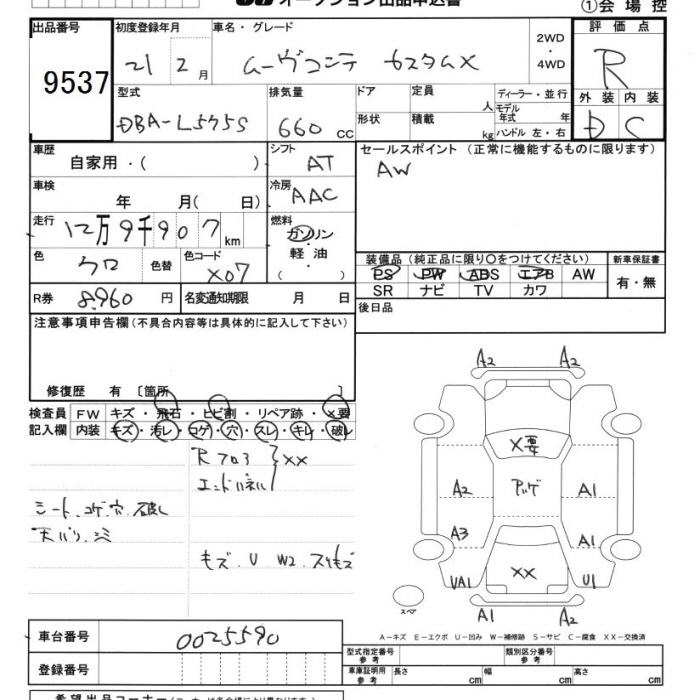 オークション出品申込書
①会場控
出品番号
初度登録年月
車名・グレード
評価点
9537
21 2月
ムーヴコンテ カスタムX
2WD・4WD
R
型式
排気量
ドア
定員
人
ディーラー・並行
モデル年式 年
外装 内装
DBA-L575S
660 CC
形状
積載
kg
ハンドル 左・右
D C
車歴
自家用・( )
シフト
AT
セールスポイント (正常に機能するものに限ります)
AW
車検
年 月( 日)
冷房
AAC
走行
12万9千907 km
燃料
ガソリン・軽油・( )
色
クロ
色替
色コード
X07
装備品 (純正品に限り○をつけてください)
新車保証書
PS PW ABS エアB AW
SR ナビ TV カワ
有・無
R券 8,960 円
名変通知期限 月 日
後日品
注意事項申告欄(不具合内容等は具体的に記入して下さい)
修復歴 有 [箇所 ]
検査員記入欄
FW キズ・飛石・ヒビ割・リペア跡・×要
内装 キズ・汚レ・コゲ・穴・スレ・キレ・破レ
Rフロア
エンドパネル
XX
シート、コゲ穴、破レ
天バリ、シミ
キズ、U W2 スリキズ
A2 A2
X要
A2 アゲ A1
A3 A1
UA1 XX U1
A1 A2
スペア
A-キズ E-エクボ U-凹み W-補修跡 S-サビ C-腐食 XX-交換済
車台番号
0025590
型式指定番号 参考
類別区分番号 参考
登録番号
車庫証明用 参考
長さ cm
幅 cm
高さ cm
希望出品コーナー